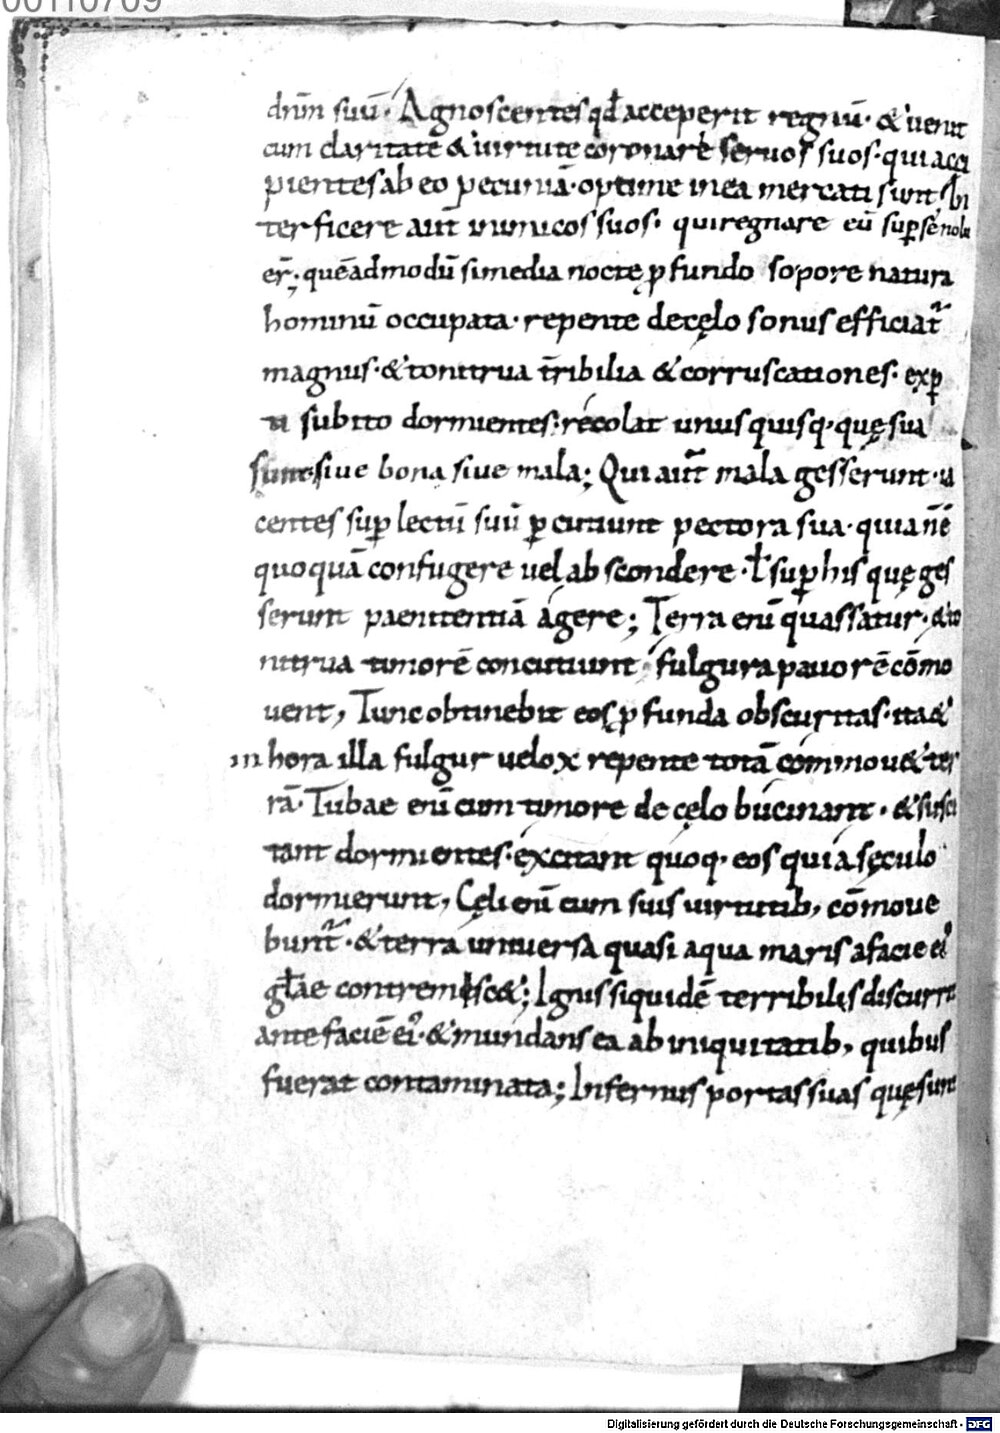 00110709
dnm̄ suū· Agnoscentes qd̄ acceperit regnū· & uenit
cum claritate & uirtute coronare seruos suos· qui acci
pientes ab eo pecuniā· optime in ea mercati sunt· In
terficere aut̄ inimicos suos· qui regnare eū sup̱ se nolu
er̄; quēadmodū si media noctę p̱fundo sopore natura
hominū occupata· repente de cęlo sonus efficiat̄
magnus· & tonitrua t̄ribilia & corruscationes· exp̱
ti subito dormientes· recolat unusquisq· quę sua
sunt· siue bona siue mala; Qui aut̄ mala gesserunt· ia
centes sup̱ lectū suū p̱cutiunt pectora sua· quia nē
quoquā confugere uel abscondere· ł sup̱ his quę ges
serunt paenitentiā agere; Terra enī quassatur· & to
nitrua timorē concutiunt· fulgura pauorē cōmo
uent, Tunc obtinebit eos p̱funda obscuritas· ita &
in hora illa fulgur uelox repente totā commou& ter
rā· Tubae enī cum timore de cęlo bucinant· & susci
tant dormientes· excitant quoq· eos qui a sęculo
dormierunt, Cęli enī cum suis uirtutib, cōmoue
bunt̄· & terra uniuersa quasi aqua maris a facie ei᾽
gl̄ae contremisc&; Ignis siquidē terribilis discurr&
ante faciē ei᾽· & mundans ea ab iniquitatib, quibus
fuerat contaminata; Infernus portas suas quę sunt
Digitalisierung gefördert durch die Deutsche Forschungsgemeinschaft - DFG